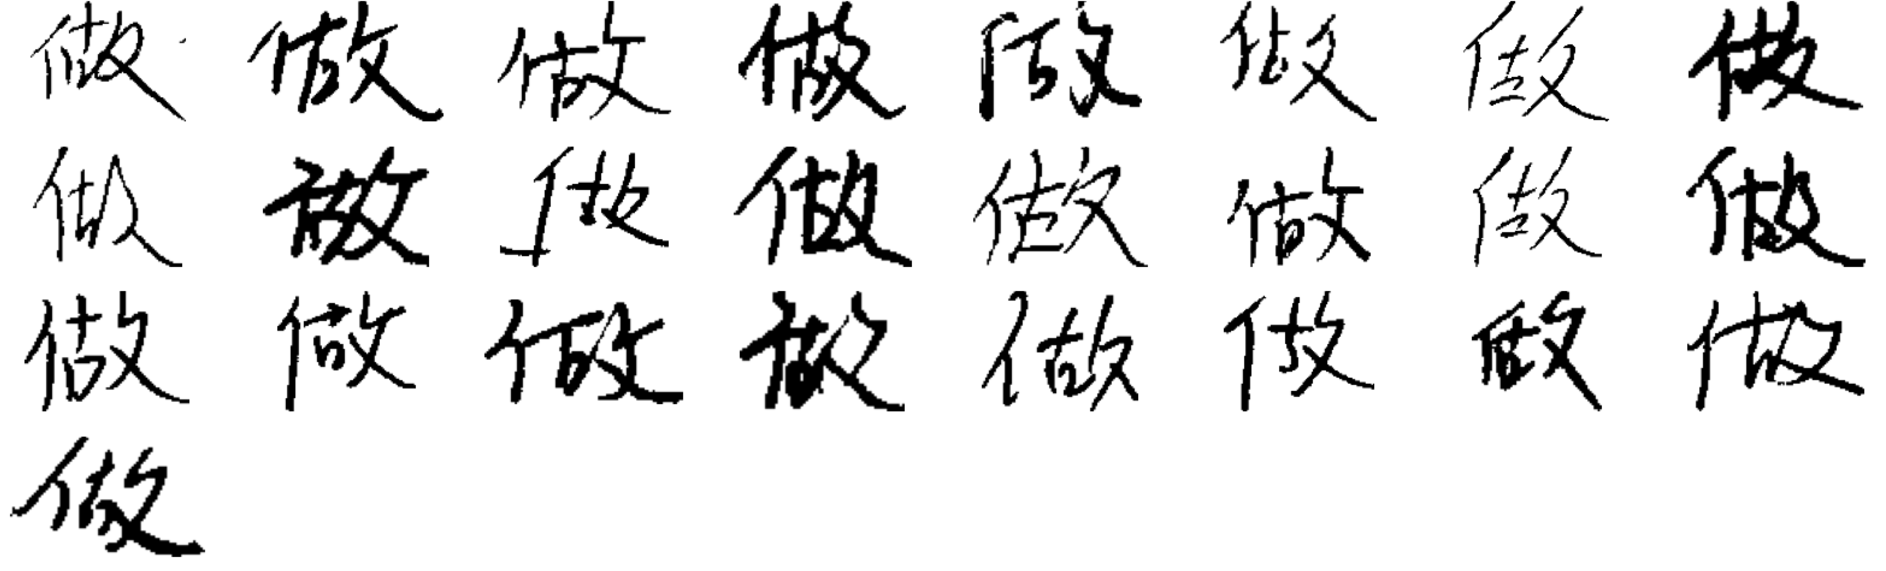 做 做 做 做 做 做 做 做
做 做 做 做 做 做 做 做
做 做 做 做 做 做 做 做
做